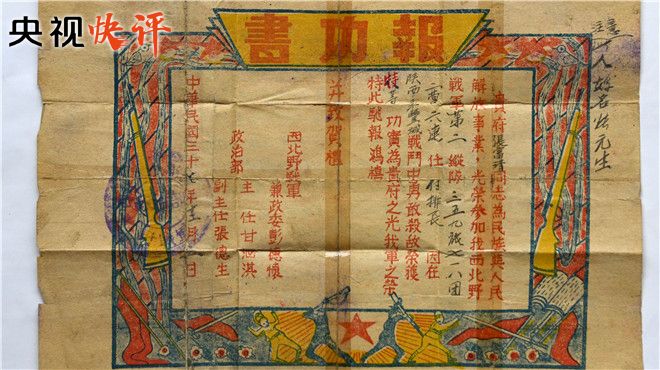 央视快评
報功書
貴府張富清同志為民族與人民
解放事業，光榮參加我西北野
戰軍第二縱隊三五九旅七一八團
二營六連任付排長因在
陝西永豐城戰鬥中勇敢殺敵榮獲
特等功實為貴府之光我軍之榮
特此馳報鴻禧
并致賀禮
西北野戰軍
兼政委彭德懷
政治部
主任甘泗淇
副主任張德生
中華民國三十七年十二月 日